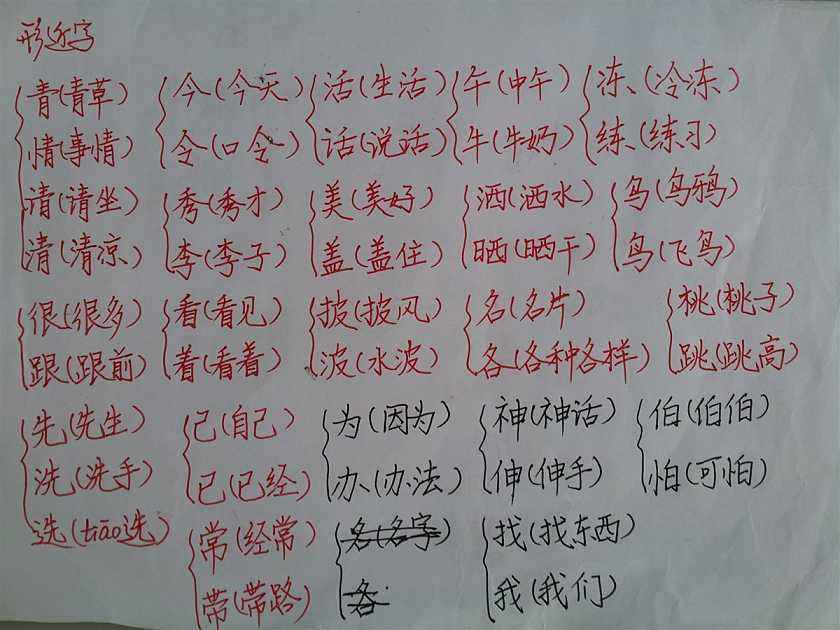 形近字
青(青草) 今(今天) 活(生活) 午(中午) 冻(冷冻)
情(事情) 令(口令) 话(说话) 牛(牛奶) 练(练习)
请(请坐) 秀(秀才) 美(美好) 洒(洒水) 乌(乌鸦)
清(清凉) 李(李子) 盖(盖住) 晒(晒干) 鸟(飞鸟)
很(很多) 看(看见) 披(披风) 名(名片) 桃(桃子)
跟(跟前) 着(看着) 波(水波) 各(各种各样) 跳(跳高)
先(先生) 己(自己) 为(因为) 神(神话) 伯(伯伯)
洗(洗手) 已(已经) 办(办法) 伸(伸手) 怕(可怕)
选(tiāo选) 常(经常) 名(名字) 找(找东西)
带(带路) 各 我(我们)